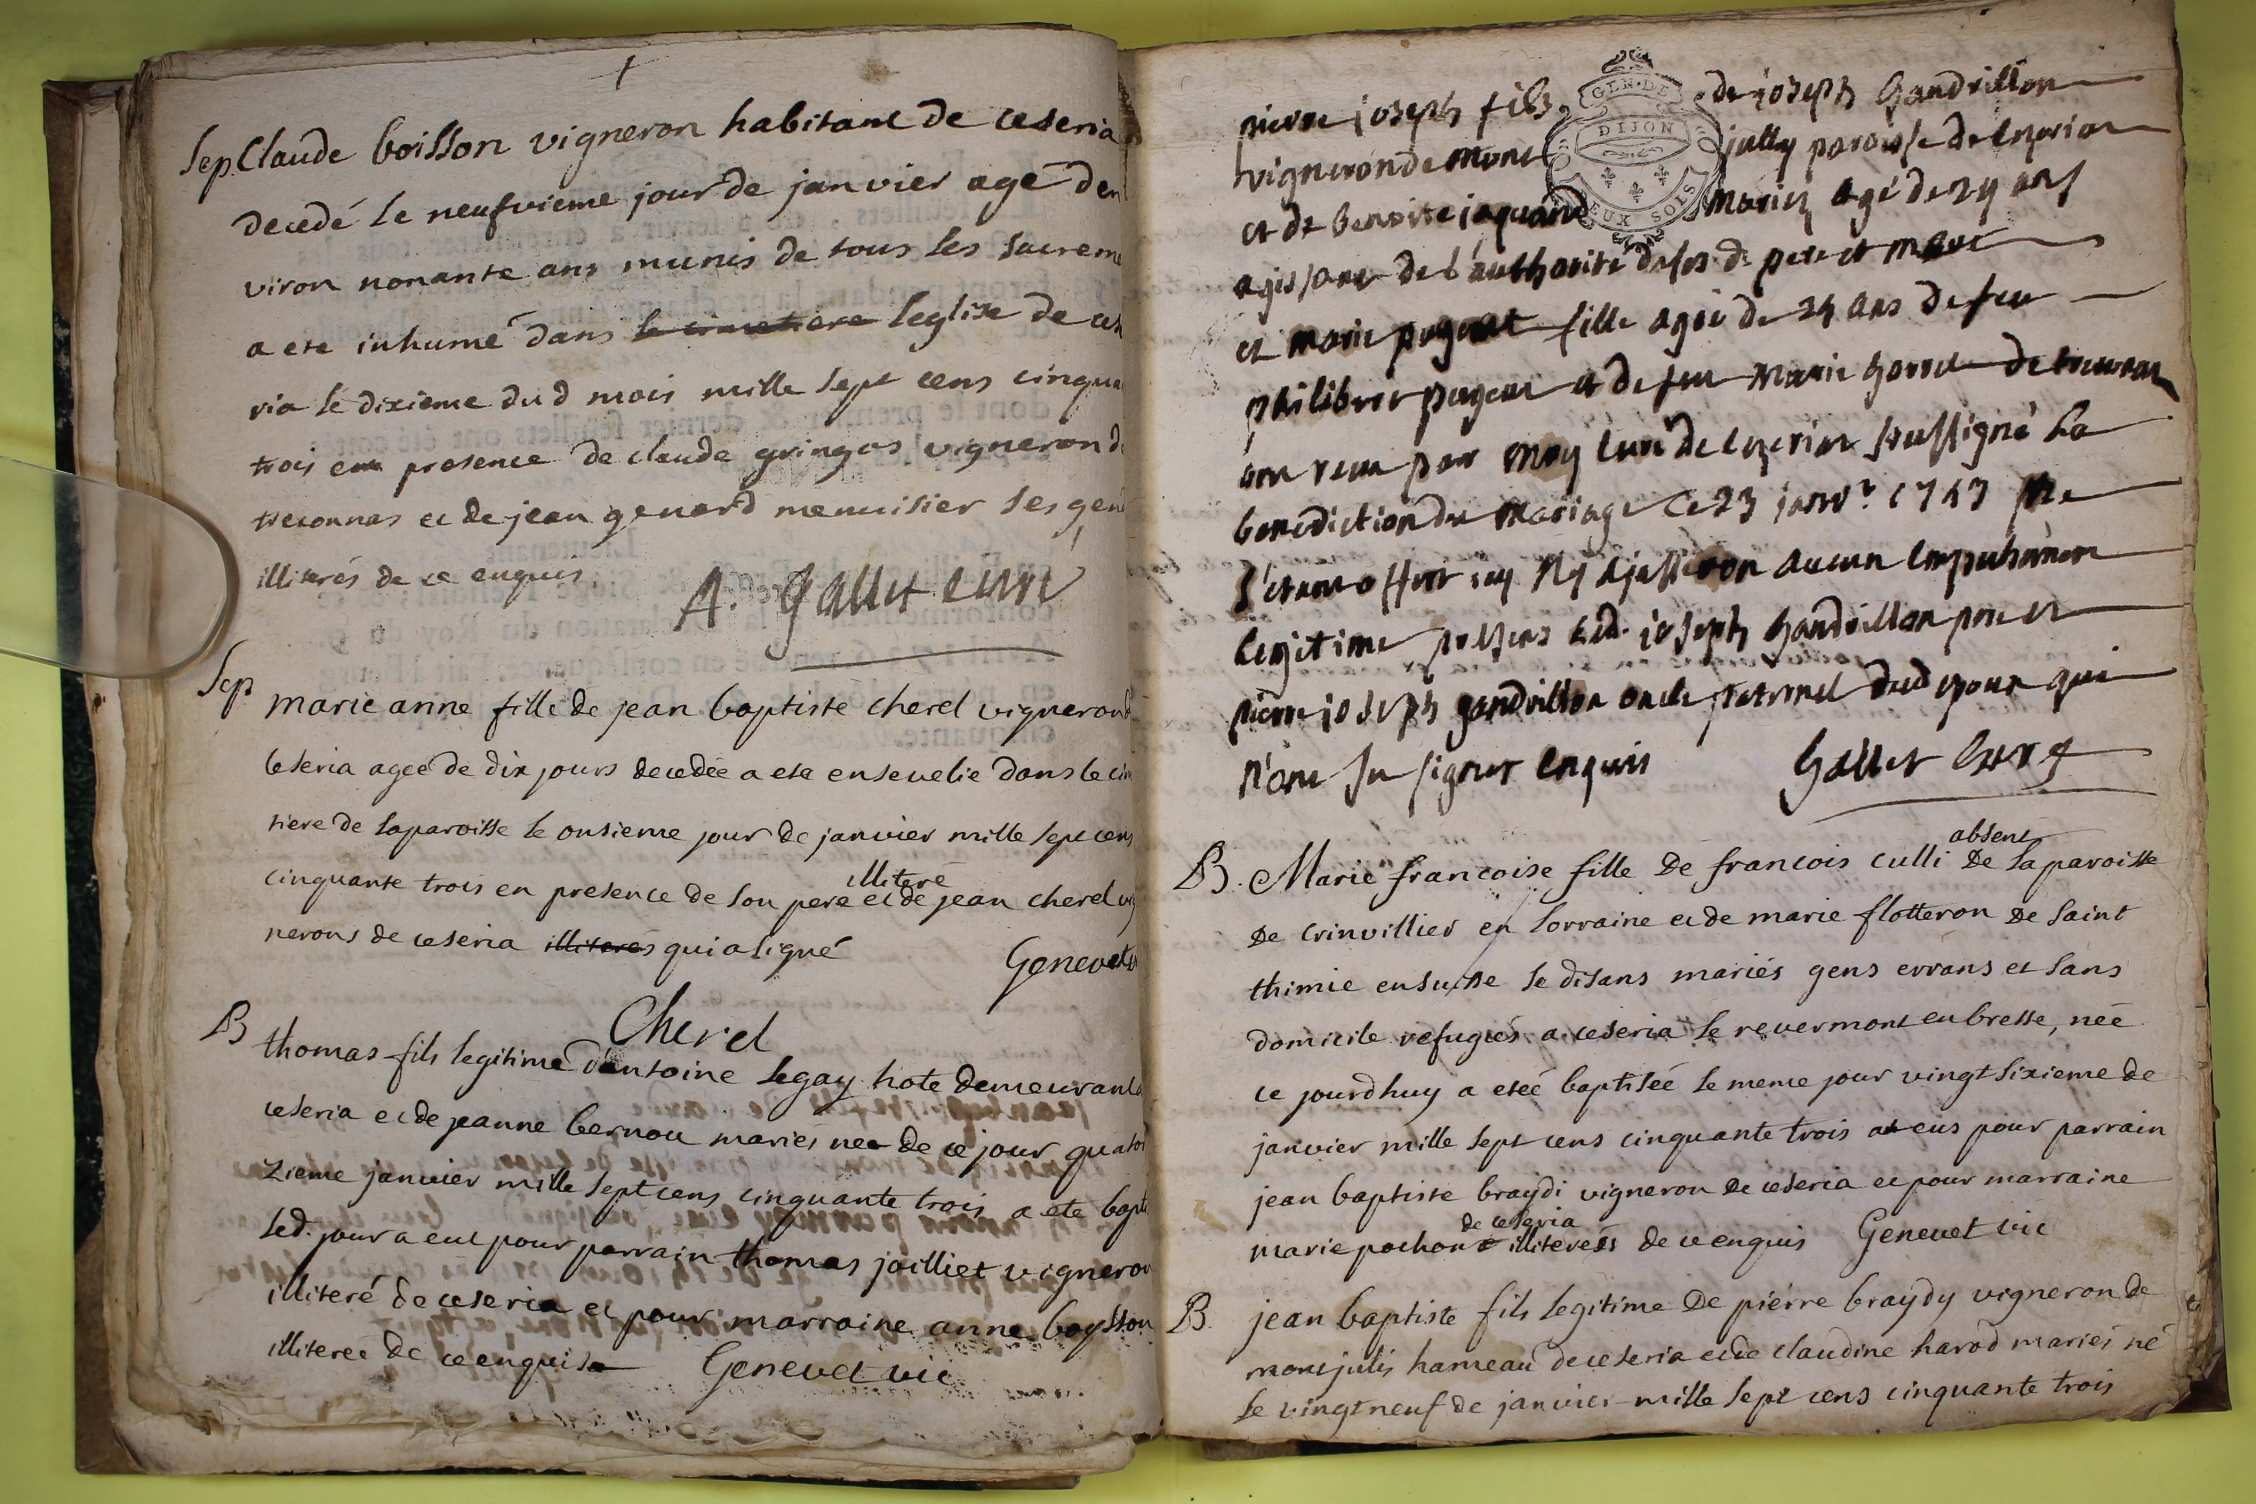 Sep. Claude boisson vigneron habitant de ceseria
decedé le neufvieme jour de janvier agé den
viron nonante ans munis de tous les sacreme
a ete inhumé dans le cimetiere leglise de cese
ria le dixieme dud mois mille sept cens cinqua
trois en presence de claude gringos vigneron de
treconnas et de jean genard menuisier les gens
illiterés de ce enquis
A. Gallet curé
Sep marie anne fille de jean baptiste cherel vigneron
Ceseria ageé de dix jours decedée a ete ensevelie dans le cim
tiere de laparoisse le onsieme jour de janvier mille sept cens
illiteré
cinquante trois en presence de son pere et de jean cherel vig
nerons de ceseria illiterés qui a signé
Genevet
Cherel
B thomas fils legitime d'antoine legay hote demeurant a
ceseria et de jeanne bernou mariés nee de ce jour quator
zieme janvier mille sept cens cinquante trois a ete bapti
led. jour a eut pour parrain thomas joilliet vigneron
illiteré de ceseria et pour marraine anne boysson
illitereé de ce enquis Genevet vic
GEN. DE
DIJON
DEUX SOLS
pierre joseph fils de joseph Gandrillon
vigneron de mont jully paroisse de Ceseria
et de benoite jaquand Mariez agé de 29 ans
agissant de l'authorité de sesd. pere et mere
et marie pugeat fille agée de 24 ans de feu
philibert pugeat et de feu Marie
ont recu par moy Curé de Ceseria soussigné la
benediction du mariage Ce 23 janvr. 1753 ne
s'etant offert icy Ny opposition aucun Empechemen
legitime presens led. joseph Gandrillon pere et
pierre joseph gandrillon oncle paternel dud epoux qui
n'ont su signer Enquis Gallet Curé
absent
B. Marie francoise fille de francois culli de la paroisse
De crinvillier en lorraine et de marie flotteron de saint
thimie ensuisse se disans mariés gens errans et sans
domicile refugiés a ceseria le revermont en bresse, neé
ce jourdhuy a eteé baptiseé le meme jour vingt sixieme de
janvier mille sept cens cinquante trois a eus pour parrain
jean baptiste braydi vigneron de ceseria et pour marraine
de ceseria
marie pochon illiterés de ce enquis Genevet vic
B. jean baptiste fils legitime de piérre braydy vigneron de
montjulis hameau de ceseria et de claudine harod mariés né
le vingt neuf de janvier mille sept cens cinquante trois